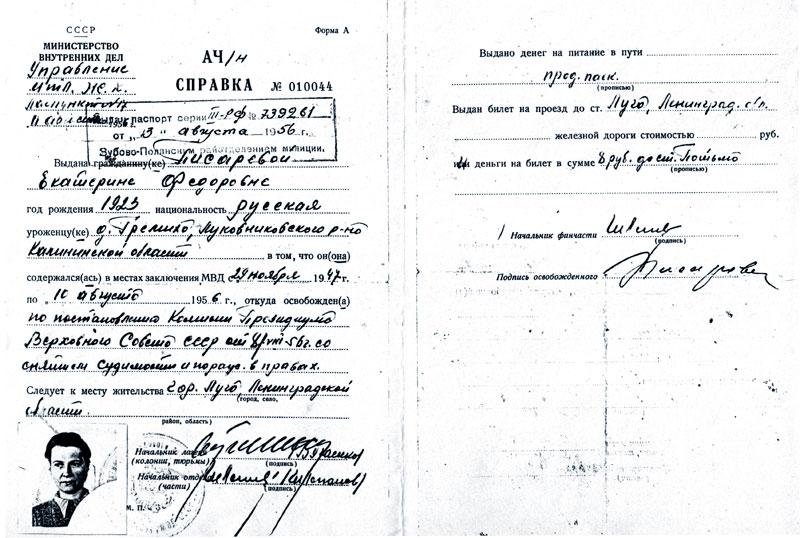 СССР
Форма А
МИНИСТЕРСТВО
ВНУТРЕННИХ ДЕЛ
Управление
АЧ/н
СПРАВКА № 010044
Выдан паспорт серии III-РФ № 739261
от „13" августа 1956 г.
Зубово-Полянским райотделением милиции.
Выдана гражданину(ке) Писаревой
Екатерине Федоровне
год рождения 1923 национальность русская
уроженцу(ке) д. Гремино, Луковниковского р-на
Калининской области в том, что он(она)
содержался(ась) в местах заключения МВД 29 ноября 1947 г.
по „10 августа 1956 г., откуда освобожден(а)
по постановлению Комиссии Президиума
Верховного Совета СССР от 8/VIII-56г. со
снятием судимости и пораж. в правах.
Следует к месту жительства гор. Луга, Ленинградской
(город, село,
области.
район, область)
Начальник лагеря
(колонии, тюрьмы)
(подпись)
Начальник отдела
(части)
(подпись)
М. П.
Выдано денег на питание в пути
прод. паек.
(прописью)
Выдан билет на проезд до ст. Луга, Ленинград. обл.
железной дороги стоимостью руб.
деньги на билет в сумме 8 руб. до ст. Потьма
(прописью)
Начальник финчасти
(подпись)
Подпись освобожденного Писарева